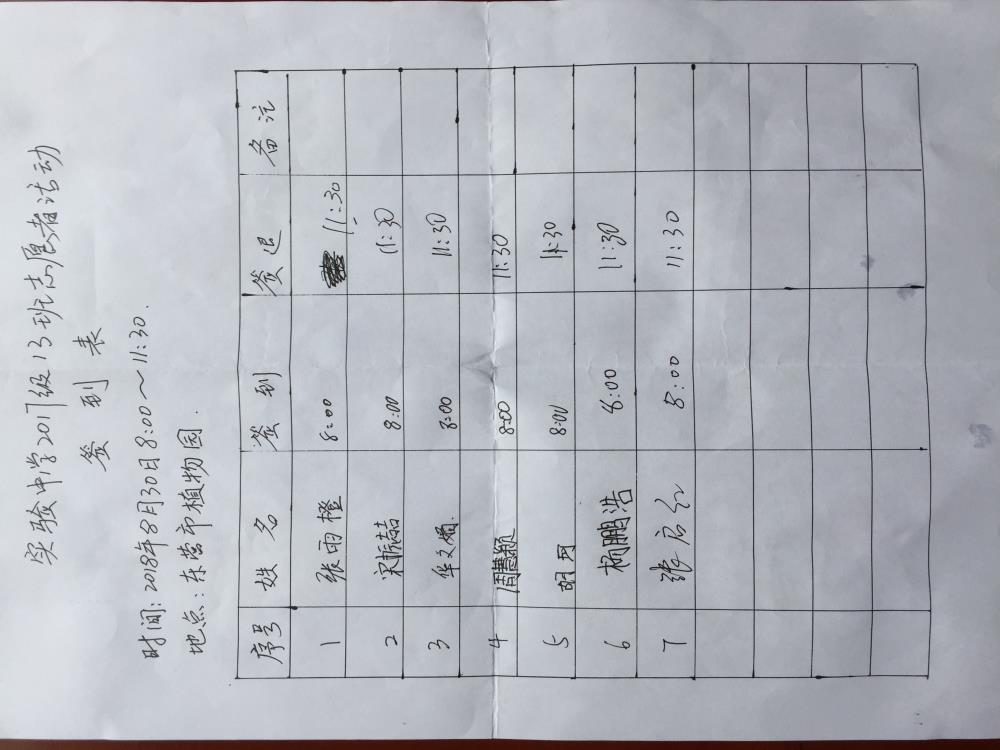 实验中学2017级13班志愿者活动
签到表
时间：2018年8月30日8:00～11:30.
地点：东营市植物园.
序号 姓名 签到 签退 备注
1 张雨橙 8:00 11:30
2 8:00 11:30
3 华文娟 8:00 11:30
4 周慧颖 8:00 11:30
5 胡珂 8:00 11:30
6 杨鹏浩 8:00 11:30
7 张启 8:00 11:30